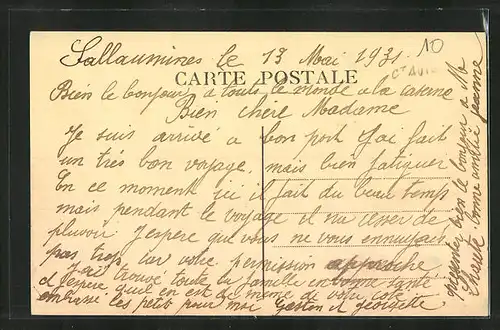 Sallaumines le 13 Mai 1931
10
CARTE POSTALE
Bien le bonjour a touts le monde a la caserne
Bien chère Madame
Je suis arrivé a bon port J'ai fait
un trés bon voyage, mais bien fatiguer
En ce moment ici il fait du beau temps
mais pendant le voyage il na cesser de
pluvoir. J'espere que vous ne vous ennuifait
pas trop, car votre permission approche
J'ai trouvé toute la famille en bonne santé
et j'espere qu'il en est de même de votre coté
embrasse les petit pour moi Gaston et Georgette
bien le bonjour a Mr
bonne amitié Jeanne